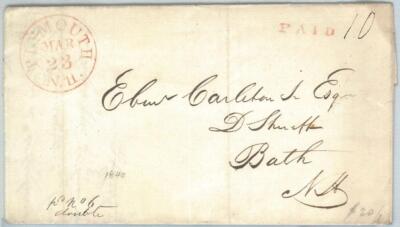 PLYMOUTH
MAR
23
N.H.
PAID
10
Ebenr Carleton Jr Esqr
D Sheriff
Bath
NH
1840
double
$20